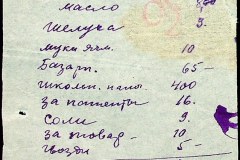 масло
шелуха 9.
мука ячм. 10
Базарн. 65-
школьн. налог 400
за патенты 16.
соли 9.
за товар- 10
гвозди 5-